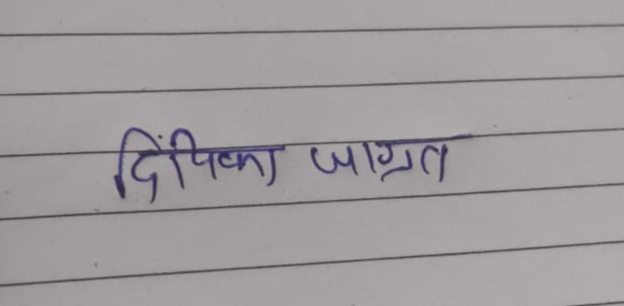 दिंपिका जाग्रत